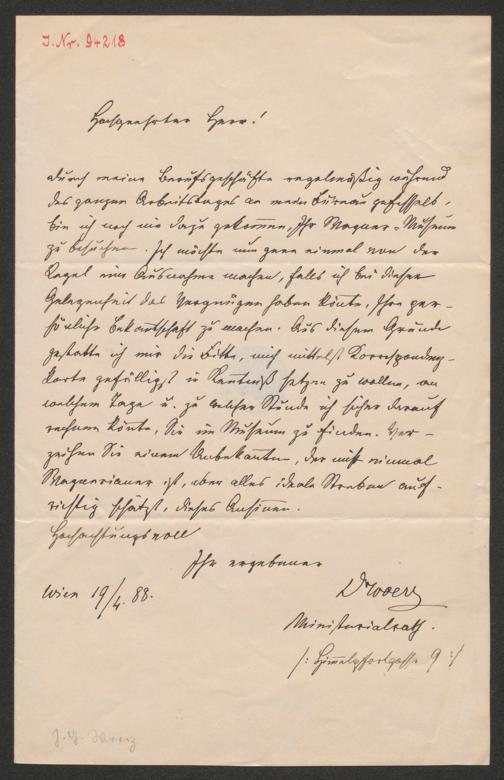 J. Nr. 94218
Hochgeehrter Herr!
Durch meine Berufsgeschäfte regelmäßig während
des ganzen Arbeitstages an mein Bureau gefesselt,
bin ich noch nie dazu gekommen, Ihr Wagner-Museum
zu besuchen. Ich möchte nun gern einmal von der
Regel eine Ausnahme machen, falls ich bei dieser
Gelegenheit das Vergnügen haben könnte, Ihre per-
sönliche Bekantschaft zu machen. Aus diesem Grunde
gestatte ich mir die Bitte, mich mittelst Korrespondenz-
karte gefälligst in Kentniß setzen zu wollen, an
welchem Tage u. zu welcher Stunde ich sicher darauf
rechnen könte, Sie im Museum zu finden. Ver-
zeihen Sie einem Unbekanten, der nicht einmal
Wagnerianer ist, aber alles ideale Streben auf-
richtig schätzt, dieses Ansinen.
Hochachtungsvoll
Ihr ergebener
Wien 19/4. 88.
Ministerialrath.
/: Himelpfortgasse 9 :/